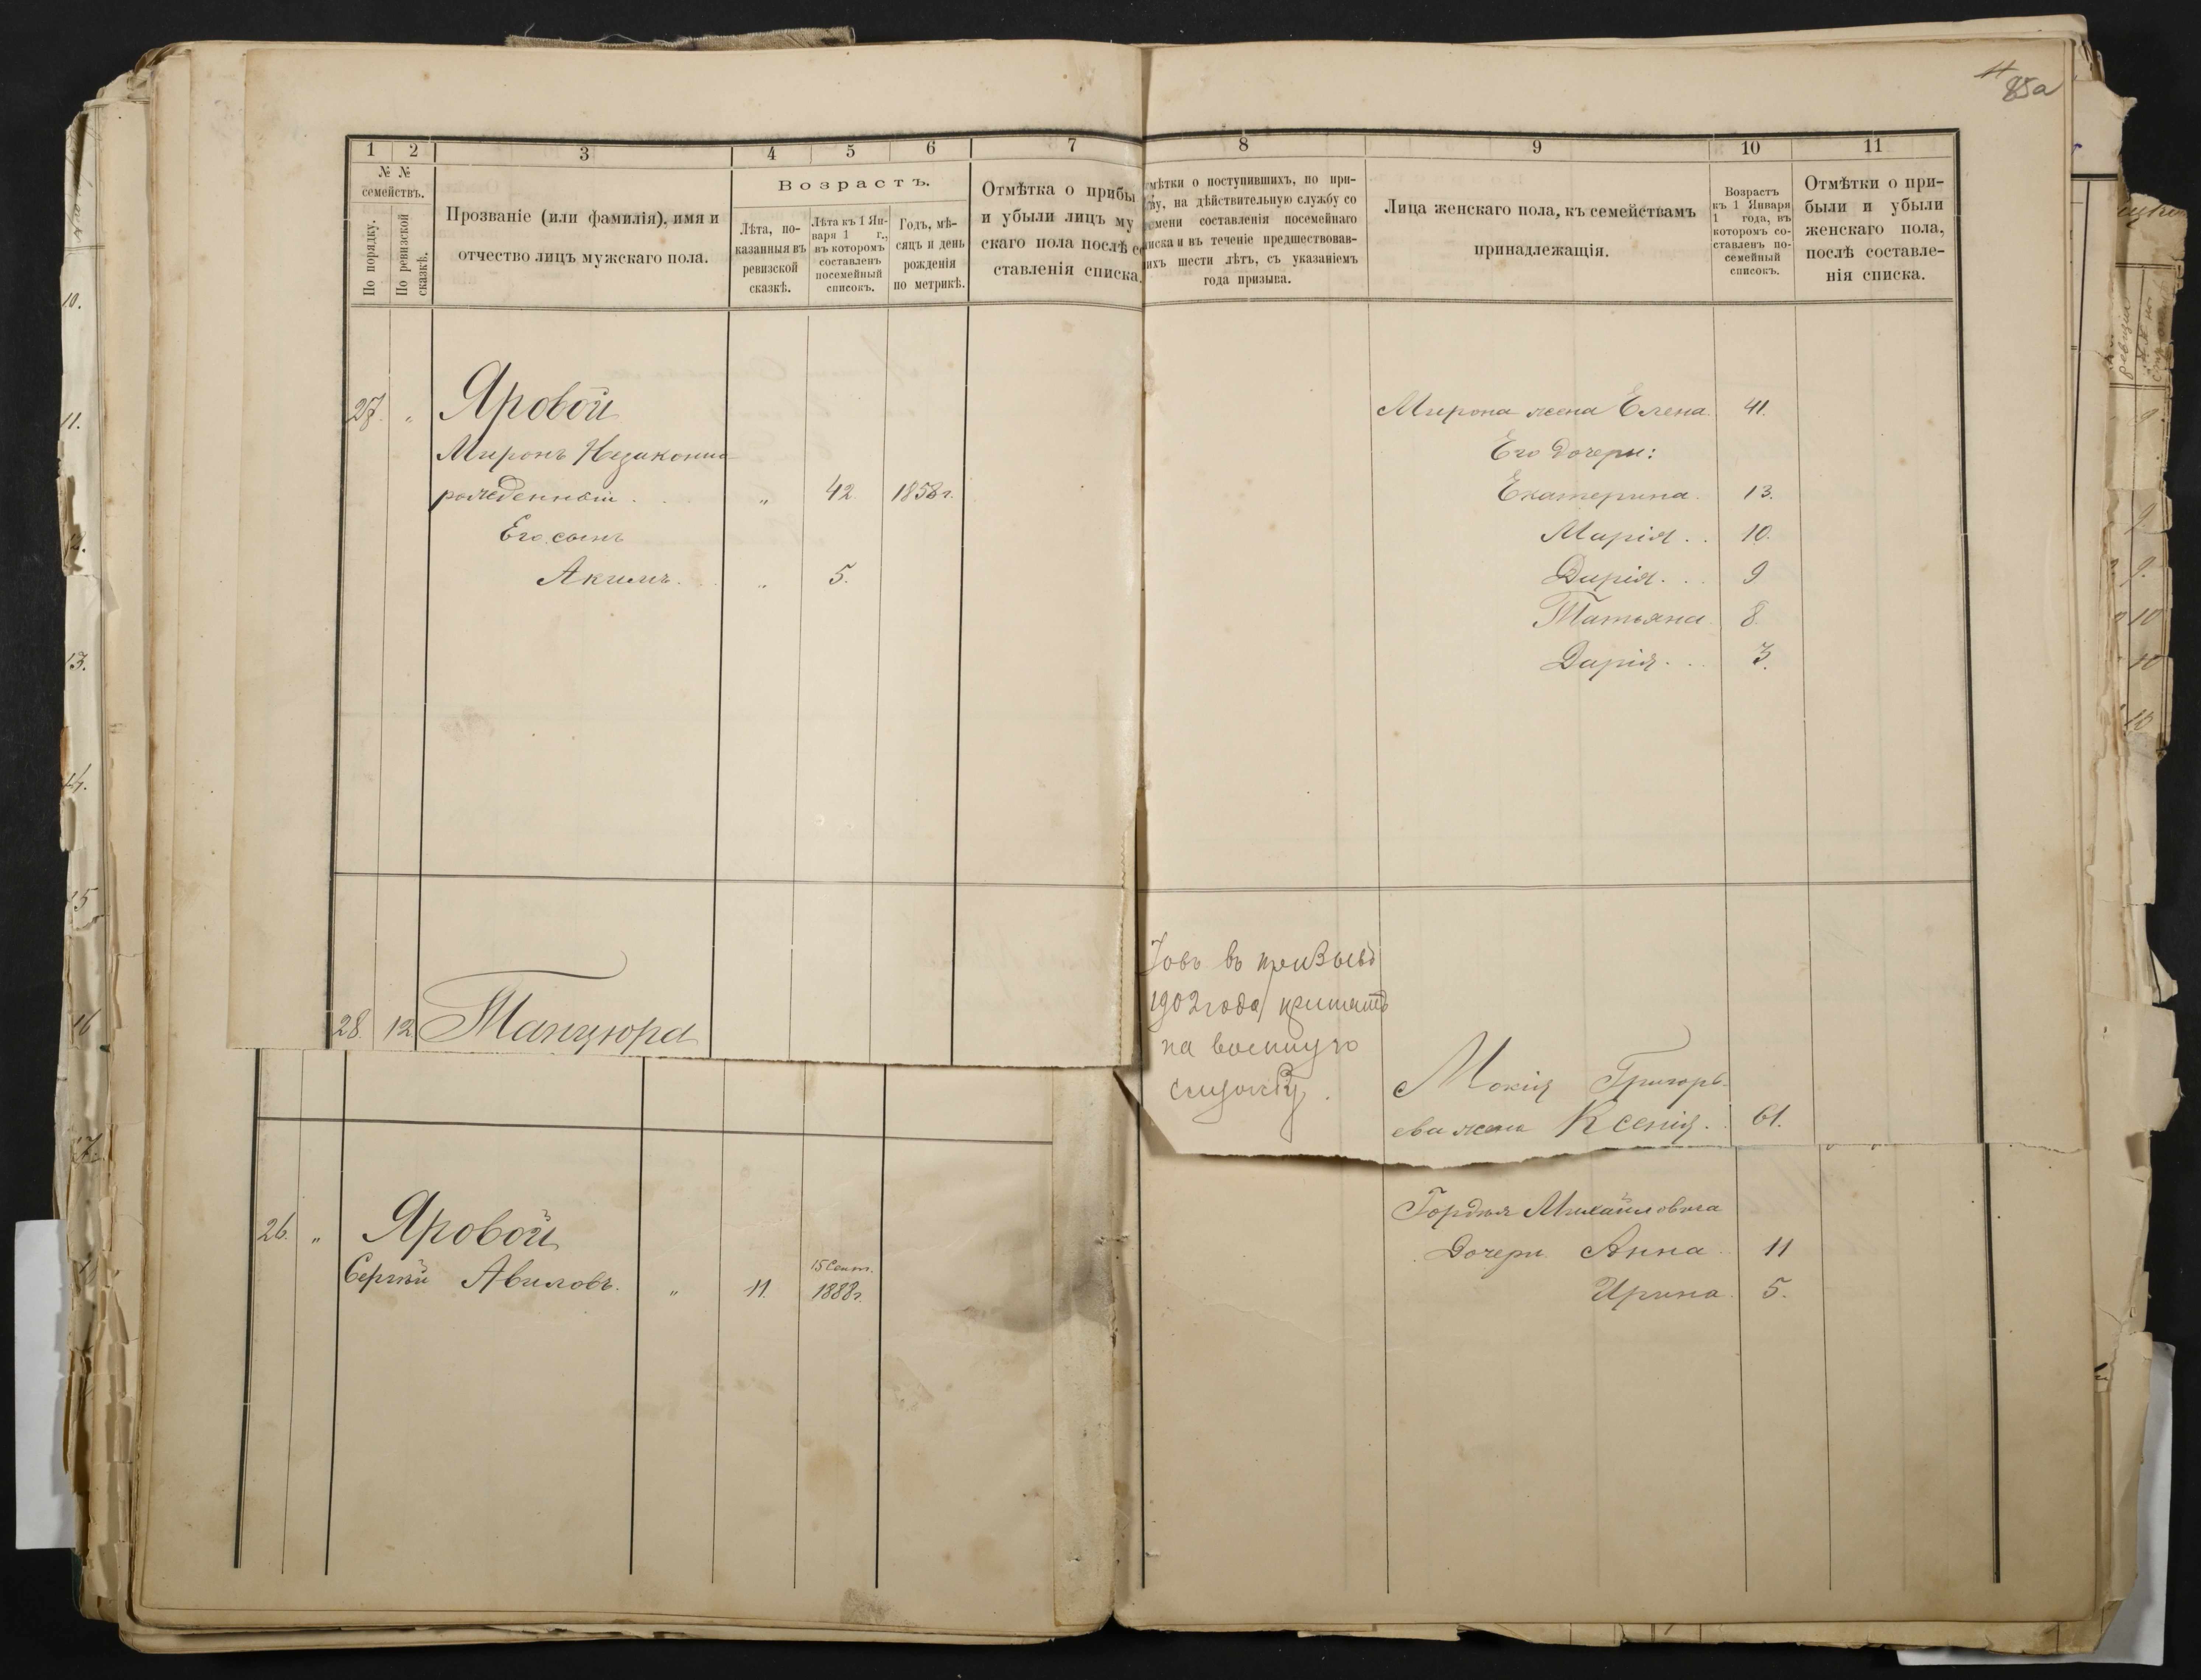 11
85а
1 2 3 4 5 6 7 8 9 10 11
№ №
семействъ.
По порядку.
По ревизской
сказкѣ.
Прозваніе (или фамилія), имя и
отчество лицъ мужскаго пола.
Возрастъ.
Лѣта, по-
казанныя въ
ревизской
сказкѣ.
Лѣта къ 1 Ян-
варя 1 г.,
въ которомъ
составленъ
посемейный
списокъ.
Годъ, мѣ-
сяцъ и день
рожденія
по метрикѣ.
Отмѣтка о прибы
и убыли лицъ му
скаго пола послѣ со
ставленія списка.
мѣтки о поступившихъ, по при-
ву, на дѣйствительную службу со
емени составленія посемейнаго
иска и въ теченіе предшествовав-
ихъ шести лѣтъ, съ указаніемъ
года призыва.
Лица женскаго пола, къ семействамъ
принадлежащія.
Возрастъ
къ 1 Января
1 года, въ
которомъ со-
ставленъ по-
семейный
списокъ.
Отмѣтки о при-
были и убыли
женскаго пола,
послѣ составле-
нія списка.
27. " Яровой
Миронъ Незаконно-
рожденный . " 42. 1858 г.
Его сынъ
Акимъ. " 5.
Мирона жена Елена. 41.
Его дочери:
Екатерина. 13.
Марія . . 10.
Дарія . . . 9
Татьяна. 8.
Дарія . . . 3.
28. 12. Танцюра
Іовъ въ призывъ
1902 года принятъ
на военную
службу.
Мокія Григорь-
ева жена Ксенія. . 61.
26. " Яровой
Сергѣй Авиловъ. " 11. 15 Сент.
1888 г.
Гордѣя Михайловича
Дочери Анна 11
Ирина. 5.
10.
11.
12.
13.
14.
15
16
17.